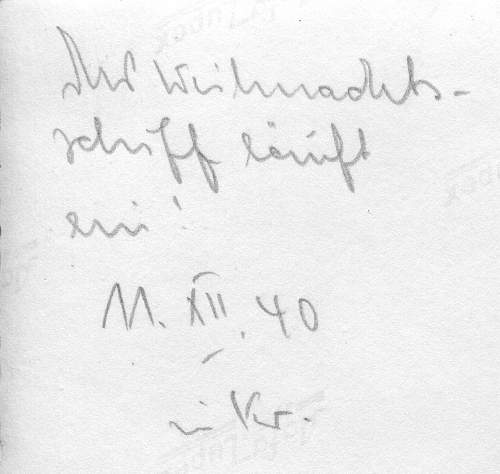 Das Weihnachts-
schiff läuft
ein!
11. XII. 40
in